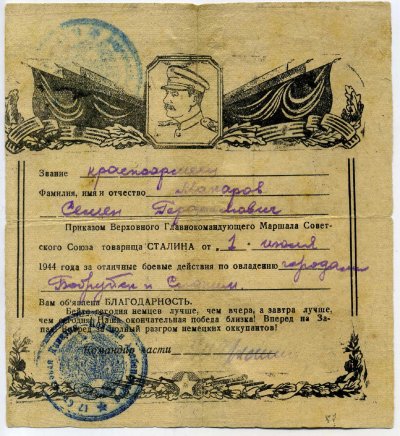 Звание красноармеец
Фамилия, имя и отчество Макаров
Семен
Приказом Верховного Главнокомандующего Маршала Совет-
ского Союза товарища СТАЛИНА от 1 июля
1944 года за отличные боевые действия по овладению городами
Бобруйск и
Вам об'явлена БЛАГОДАРНОСТЬ.
Бейте сегодня немцев лучше, чем вчера, а завтра лучше,
чем сегодня! Наша окончательная победа близка! Вперед на За-
пад, вперед полный разгром немецких оккупантов!
Командир части